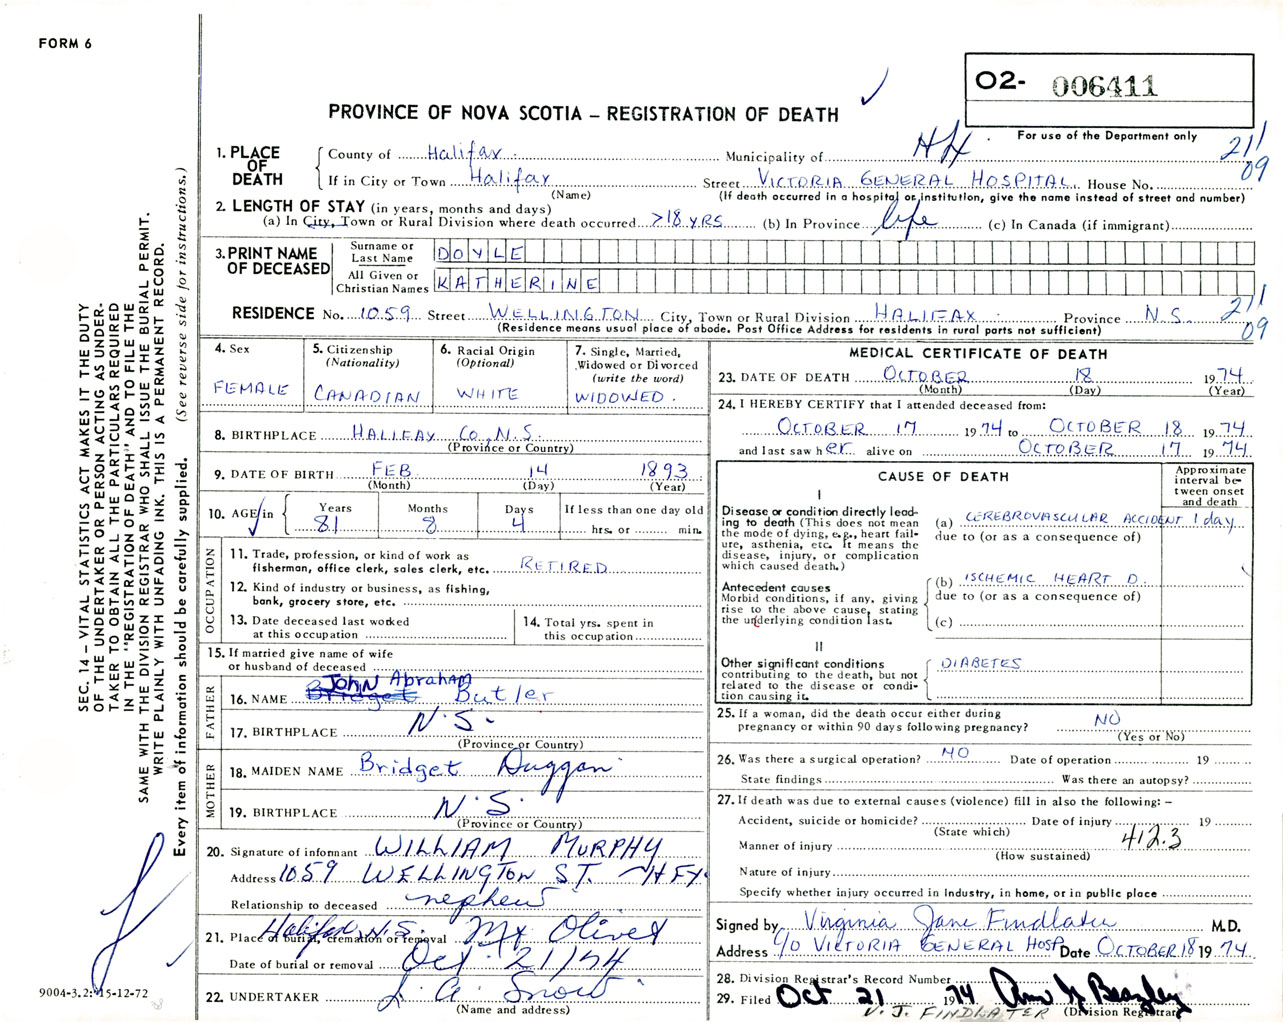 FORM 6
O2- 006411
PROVINCE OF NOVA SCOTIA – REGISTRATION OF DEATH
For use of the Department only
1. PLACE OF DEATH
County of Halifax Municipality of Hfx 211
If in City or Town Halifax Street VICTORIA GENERAL HOSPITAL House No. 09
(Name) (If death occurred in a hospital or institution, give the name instead of street and number)
2. LENGTH OF STAY (in years, months and days)
(a) In City, Town or Rural Division where death occurred >18 YRS (b) In Province life (c) In Canada (if immigrant)
3. PRINT NAME OF DECEASED
Surname or Last Name DOYLE
All Given or Christian Names KATHERINE
RESIDENCE No. 1059 Street WELLINGTON City, Town or Rural Division HALIFAX Province N.S. 211
(Residence means usual place of abode. Post Office Address for residents in rural parts not sufficient) 09
4. Sex
FEMALE
5. Citizenship
(Nationality)
CANADIAN
6. Racial Origin
(Optional)
WHITE
7. Single, Married, Widowed or Divorced
(write the word)
WIDOWED.
8. BIRTHPLACE HALIFAX Co., N.S.
(Province or Country)
9. DATE OF BIRTH FEB 14 1893
(Month) (Day) (Year)
10. AGE in
Years Months Days If less than one day old
81 8 4 hrs. or min.
OCCUPATION
11. Trade, profession, or kind of work as
fisherman, office clerk, sales clerk, etc. RETIRED
12. Kind of industry or business, as fishing,
bank, grocery store, etc.
13. Date deceased last worked
at this occupation
14. Total yrs. spent in
this occupation
15. If married give name of wife
or husband of deceased
FATHER
John Abraham
16. NAME Bridget Butler
17. BIRTHPLACE N.S.
(Province or Country)
MOTHER
18. MAIDEN NAME Bridget Duggan
19. BIRTHPLACE N.S.
(Province or Country)
20. Signature of informant WILLIAM MURPHY
Address 1059 WELLINGTON ST. HFX
Relationship to deceased nephew
Halifax, N.S.
21. Place of burial, cremation or removal Mt Olivet
Date of burial or removal Oct. 21/74
22. UNDERTAKER J. A. Snow
(Name and address)
MEDICAL CERTIFICATE OF DEATH
23. DATE OF DEATH OCTOBER 18 1974
(Month) (Day) (Year)
24. I HEREBY CERTIFY that I attended deceased from:
OCTOBER 17 1974 to OCTOBER 18 1974
and last saw her alive on OCTOBER 17 1974
CAUSE OF DEATH
Approximate interval between onset and death
I
Disease or condition directly leading to death (This does not mean the mode of dying, e.g., heart failure, asthenia, etc. It means the disease, injury, or complication which caused death.)
(a) CEREBROVASCULAR ACCIDENT 1 day
due to (or as a consequence of)
Antecedent causes
Morbid conditions, if any, giving rise to the above cause, stating the underlying condition last.
(b) ISCHEMIC HEART D.
due to (or as a consequence of)
(c)
II
Other significant conditions
contributing to the death, but not related to the disease or condition causing it.
DIABETES
25. If a woman, did the death occur either during
pregnancy or within 90 days following pregnancy? NO
(Yes or No)
26. Was there a surgical operation? NO Date of operation 19
State findings Was there an autopsy?
27. If death was due to external causes (violence) fill in also the following: –
Accident, suicide or homicide? Date of injury 19
(State which)
412.3
Manner of injury
(How sustained)
Nature of injury
Specify whether injury occurred in industry, in home, or in public place
Signed by Virginia Jane Findlater M.D.
Address c/o VICTORIA GENERAL HOSP Date OCTOBER 18 1974
28. Division Registrar's Record Number
29. Filed Oct 21 1974
(Division Registrar)
V. J. FINDLATER
SEC. 14 – VITAL STATISTICS ACT MAKES IT THE DUTY
OF THE UNDERTAKER OR PERSON ACTING AS UNDER-
TAKER TO OBTAIN ALL THE PARTICULARS REQUIRED
IN THE "REGISTRATION OF DEATH" AND TO FILE THE
SAME WITH THE DIVISION REGISTRAR WHO SHALL ISSUE THE BURIAL PERMIT.
WRITE PLAINLY WITH UNFADING INK. THIS IS A PERMANENT RECORD.
Every item of information should be carefully supplied. (See reverse side for instructions.)
9004-3.2: 15-12-72